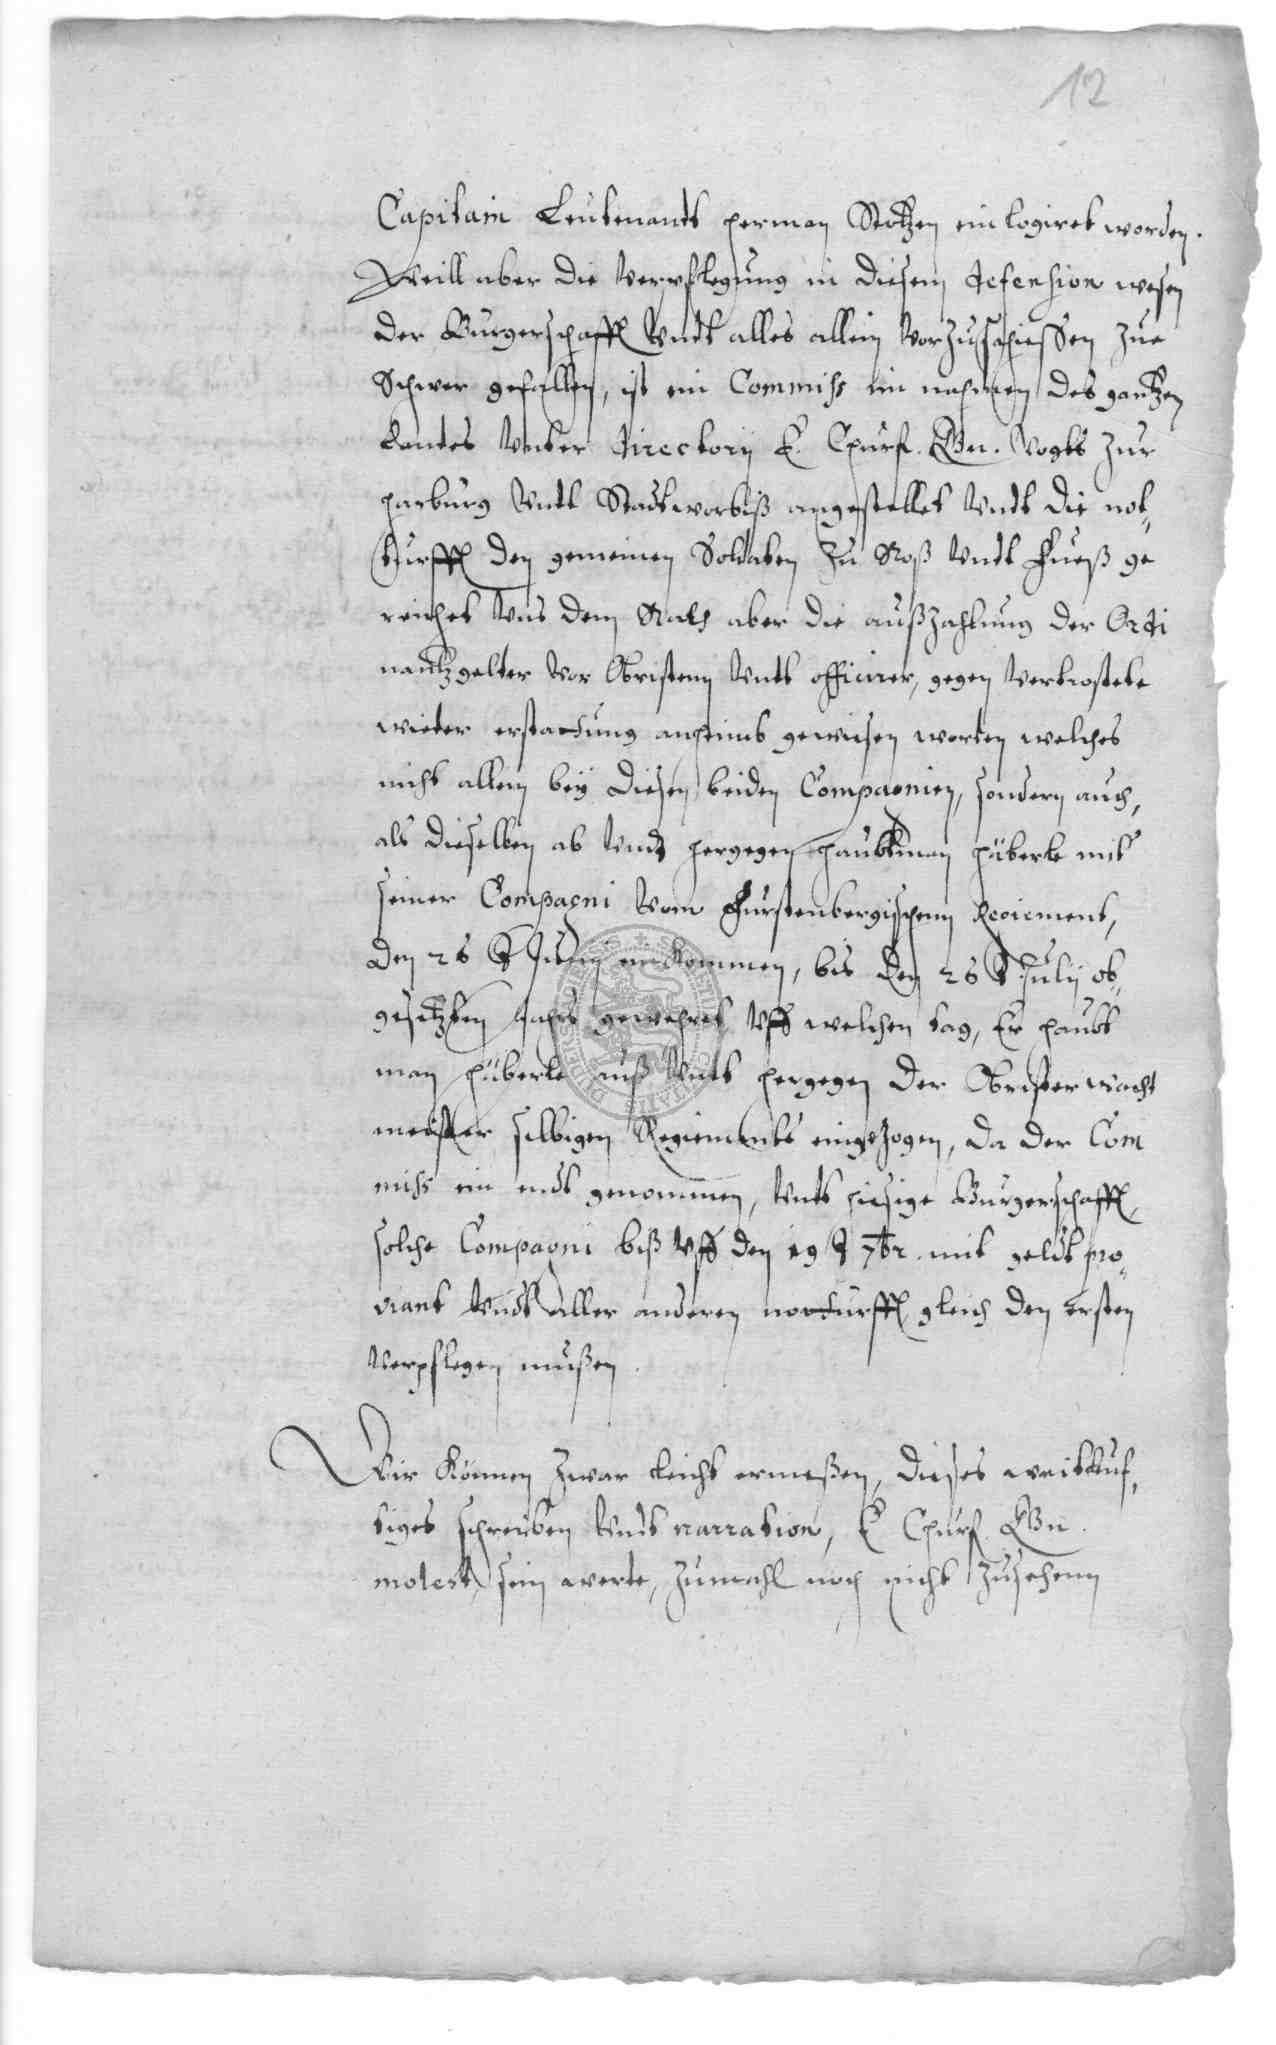 12
Capitain Leutenandt Herman Stotzen ein logiret worden.
Weill aber die Verpflegung in diesem defension wesen
der Burgerschafft Undt alles allein Vorzuschiessen zue
Schwer gefallen, ist ein Commiss im nahmen des gantzen
Landes Unter directorij E. Churf. Gn. Vogts zur
Harburg Undt Stadtworbiß angestellet Undt die not,
turfft den gemeinen Soldaten zu Roß Undt Fueß ge
reichet Uns dem Rath aber die außzahlung der Ordi
nantzgelter Vor Obristenn Undt officirer, gegen Vertrostete
wieder erstadtung anheimb gewiesen worden welches
nicht allein beÿ diesen beiden Compagnien, sondern auch,
als dieselben ab Undt hergegen Haubtman Häberle mit
seiner Compagni Vom Furstenbergischenn Regiement,
den 26 Junij einkommen, bis den 26 Julij ob,
gesetzten Jahrs gewehret Uff welchen tag, Er Haubt
man Häberle auß Undt hergegen der Obrister wacht
meister selbigen Regiements eingezogen, da der Com
miss ein endt genommen, Undt hiesige Burgerschafft,
solche Compagni biß Uff den 19 7br. mit geldt pro,
viant Undt aller anderen nordturfft gleich den ersten
Verpflegen mußen.
Wir Können zwar leicht ermeßen, dieses weitleuf,
tiges schreiben Undt narration, E Churf. Gn.
molest sein werde, zumahl noch nicht zusehenn